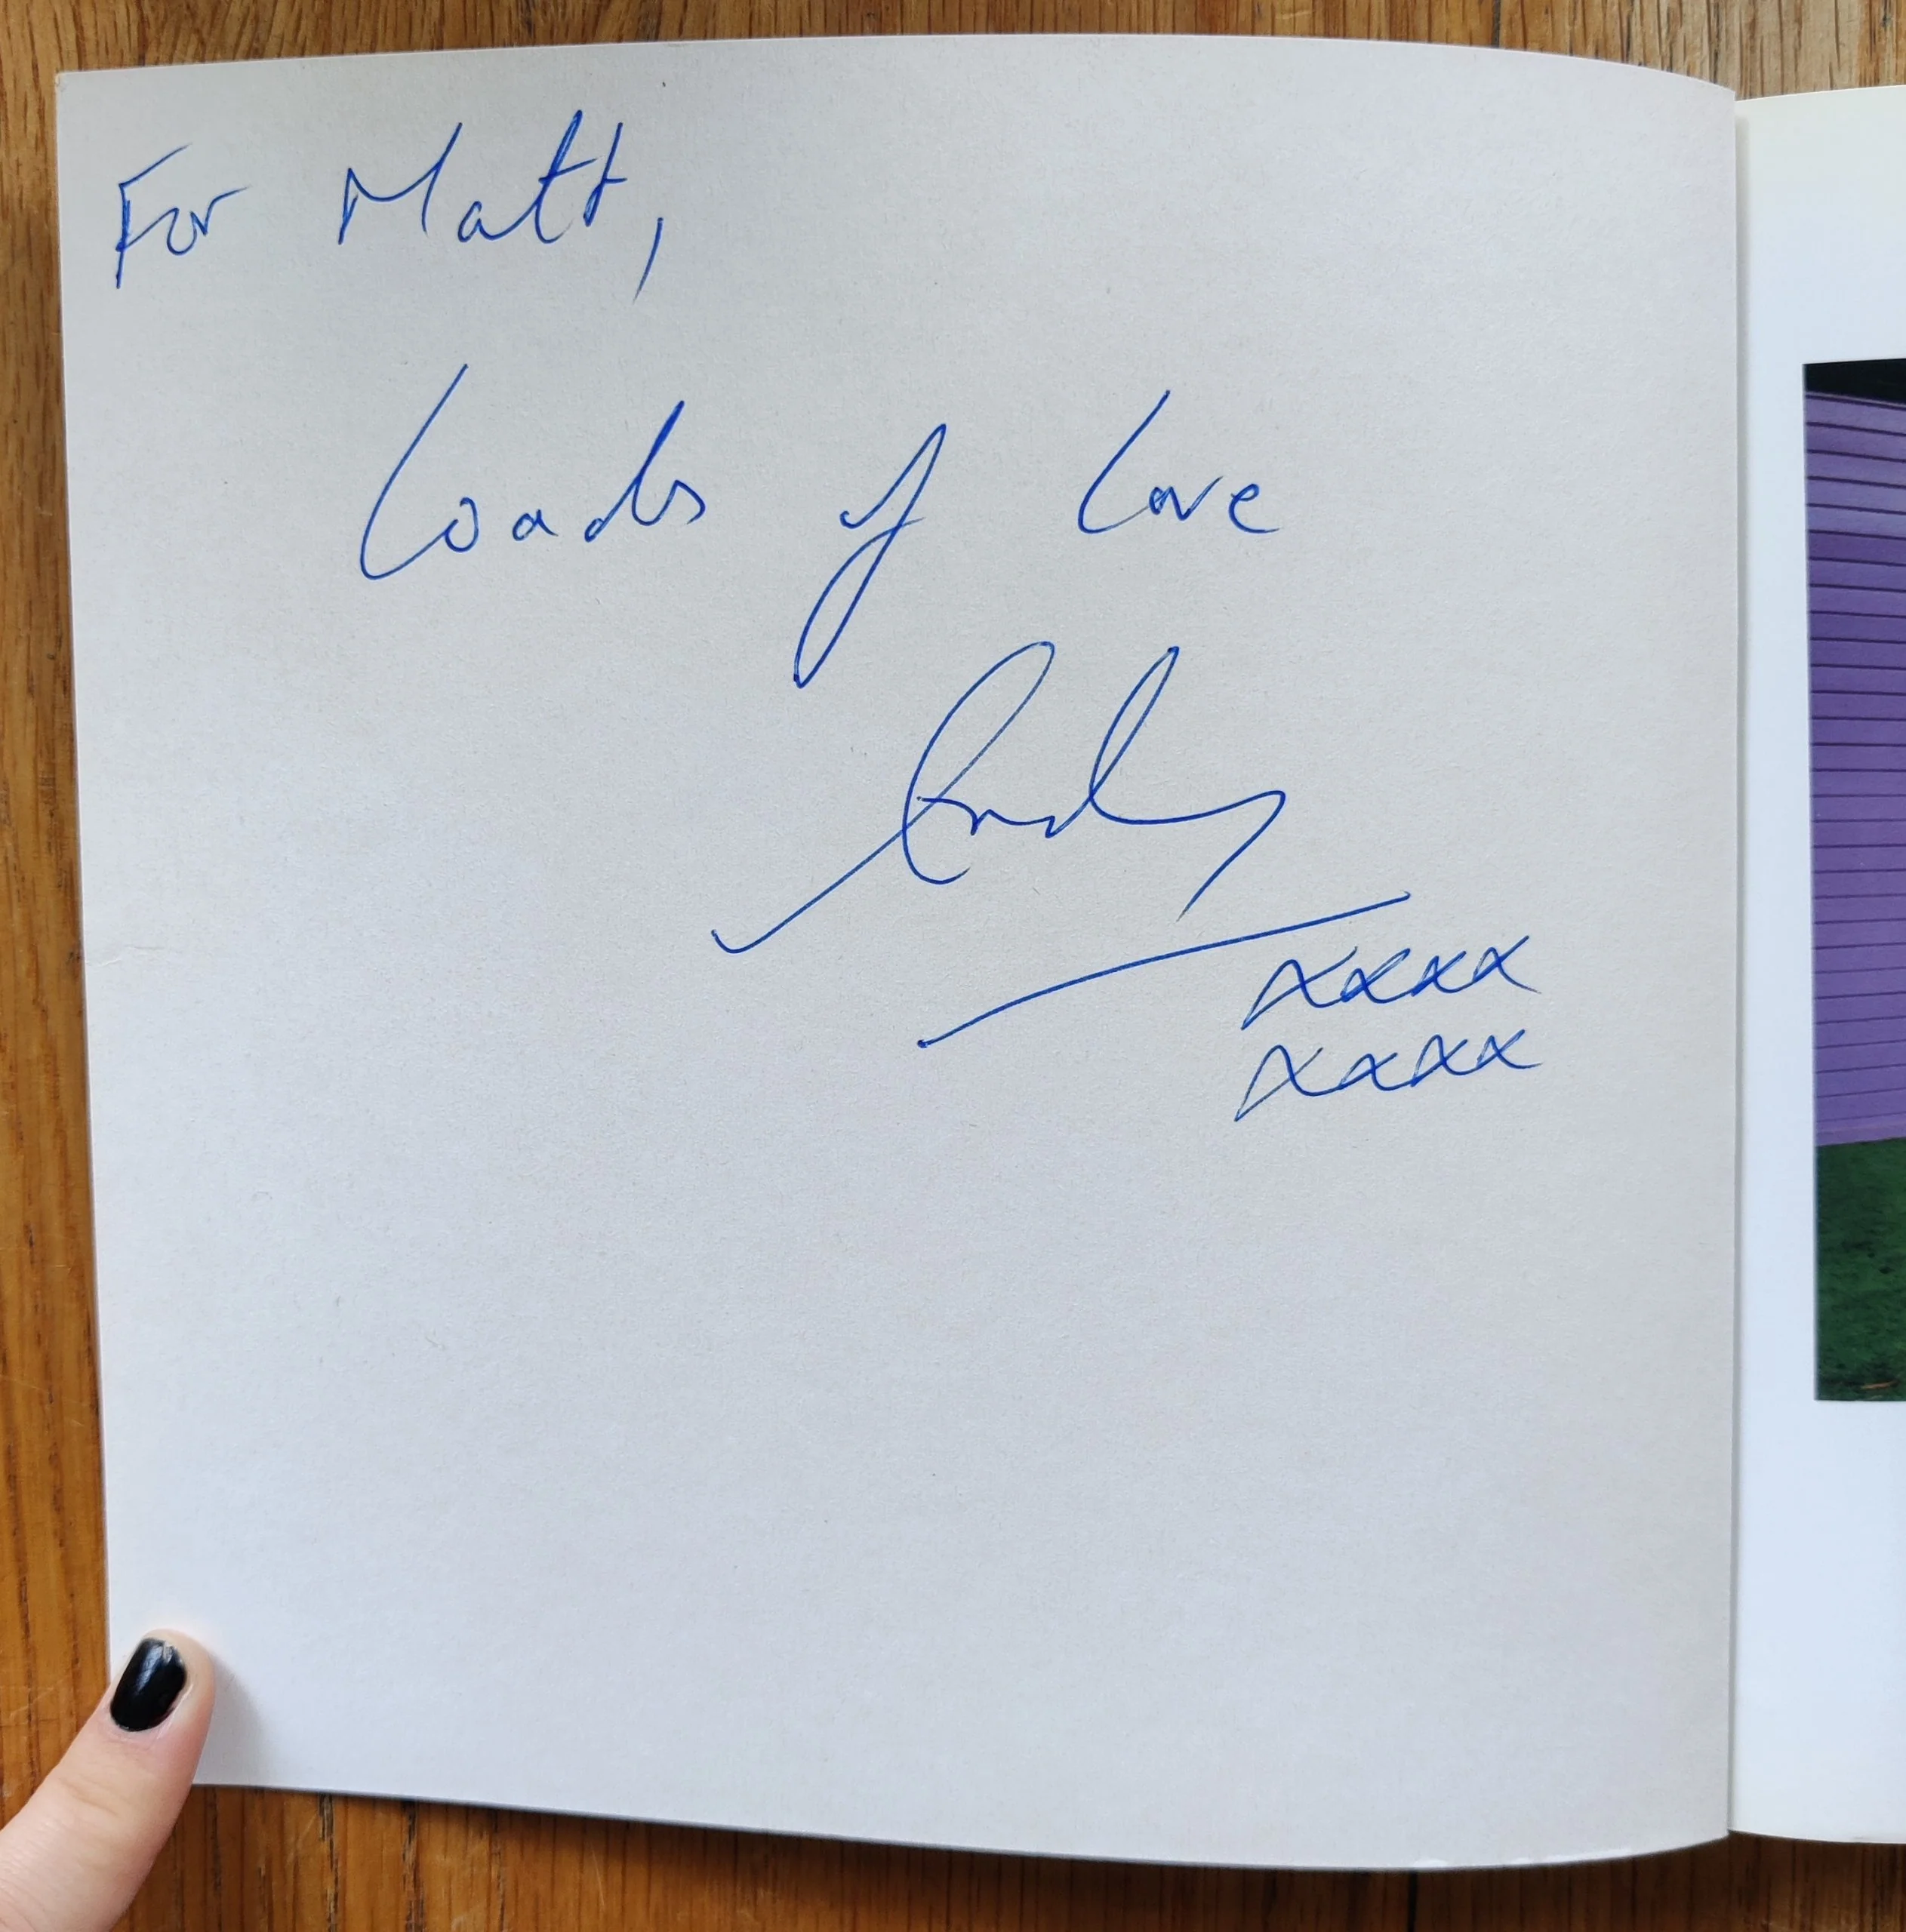 For Matt,
Loads of Love
Andy
xxxx
xxxx